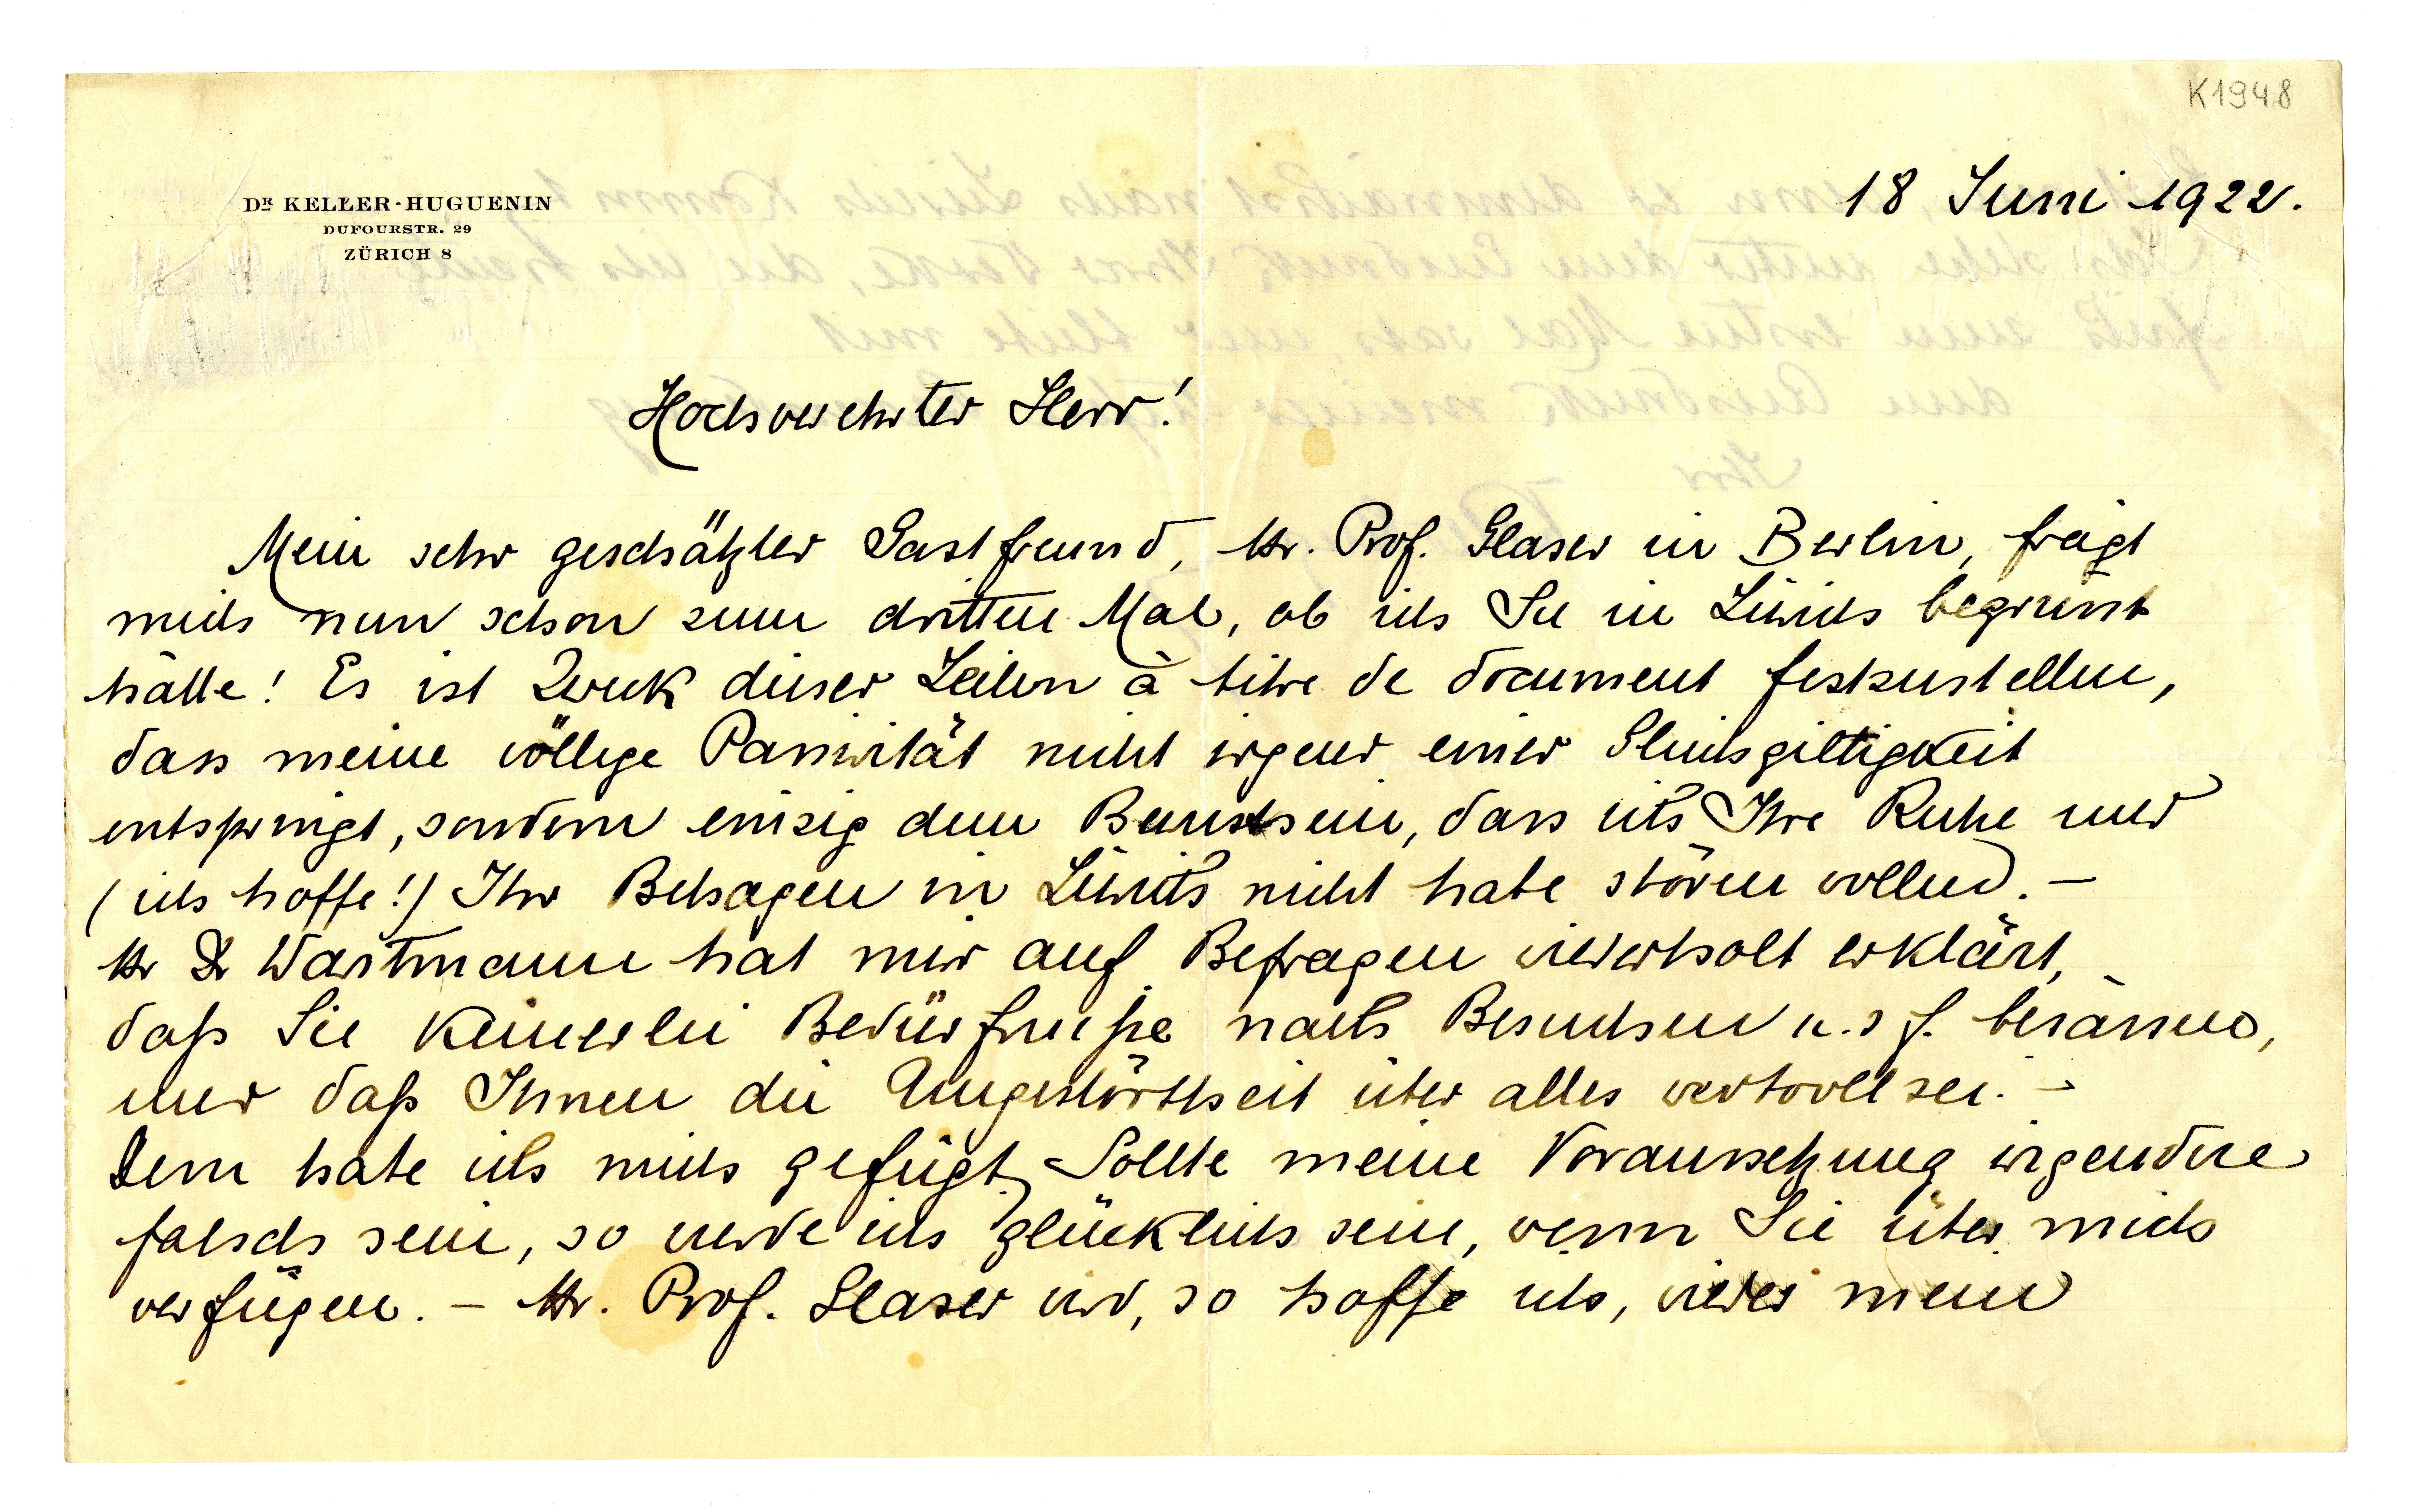 K1948
18 Juni 1922.
DR KELLER-HUGUENIN
DUFOURSTR. 29
ZÜRICH 8
Hochverehrter Herr!
Mein sehr geschätzter Gastfreund, Hr. Prof. Glaser in Berlin, frägt
mich nun schon zum dritten Mal, ob ich Sie in Zürich begrüsst
hätte! Es ist Zweck dieser Zeilen à titre de document festzustellen,
dass meine völlige Passivität nicht irgend einer Gleichgiltigkeit
entspringt, sondern einzig dem Bewusstsein, dass ich Ihre Ruhe und
(ich hoffe!) Ihr Behagen in Zürich nicht habe stören wollen. –
Hr Dr Wartmann hat mir auf Befragen wiederholt erklärt,
daß Sie keinerlei Bedürfniße nach Besuchen u. s f. besässen,
und daß Ihnen die Ungestörtheit über alles wertvoll sei. –
Dem habe ich mich gefügt. Sollte meine Voraussetzung irgendwie
falsch sein, so werde ich glücklich sein, wenn Sie über mich
verfügen. – Hr. Prof. Glaser wird, so hoffe ich, wieder mein